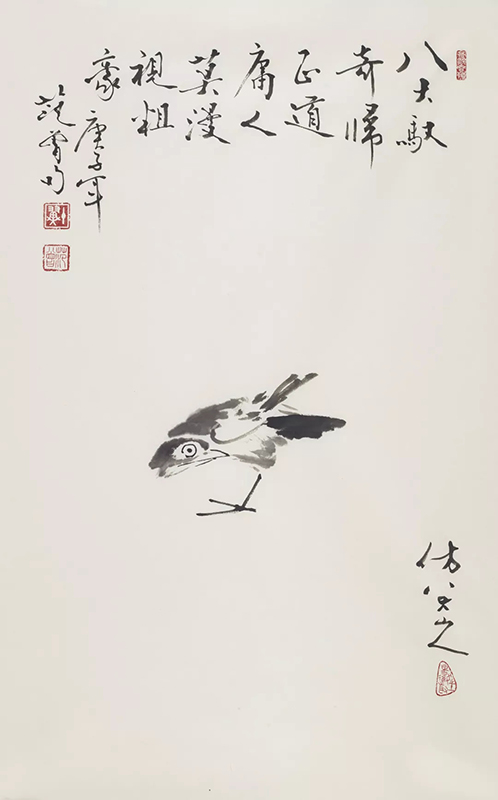 八大馭
奇歸
正道
庸人
莫漫
視粗
豪
庚子年
范曾句
仿八大山人